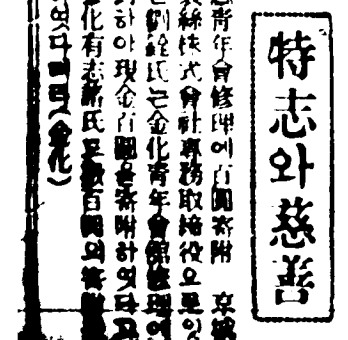 特志와慈善
志青年會修理에百圓寄附 京城
製絲株式會社專務取締役으로잇
劉銓氏는金化靑年會館修理에
하야現金百圓을寄附하엿다고
化有志諸氏도數百圓의寄附
엿다더라(金化)